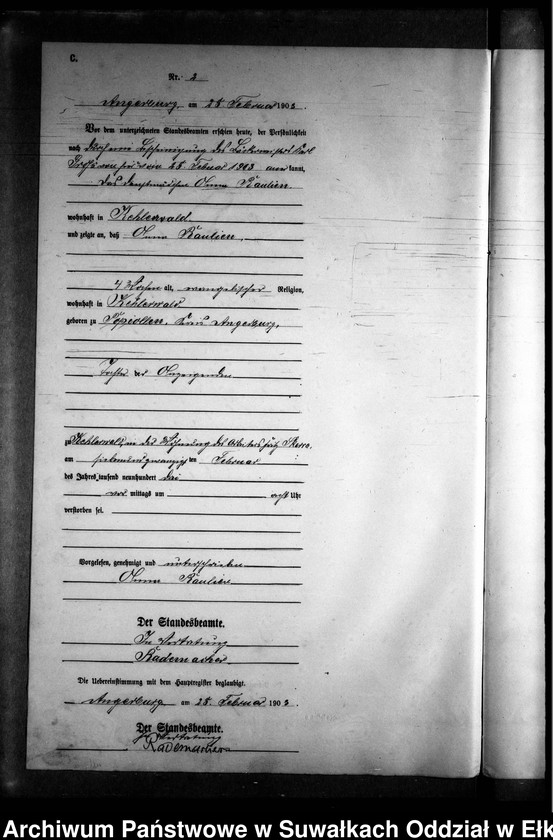 C.
Nr. 2
Angerburg, am 28. Februar 1903.
Vor dem unterzeichneten Standesbeamten erschien heute, der Persönlichkeit
nach durch eine Bescheinigung des
vom 28. Februar 1903 anerkannt,
das Dienstmädchen Anna Kaulien
wohnhaft in Kehlerwald
und zeigte an, daß Anna Kaulien,
4 Wochen alt, evangelischer Religion,
wohnhaft in Kehlerwald
geboren zu Popiollen, Kreis Angerburg,
Tochter der Anzeigenden
zu Kehlerwald, in der Wohnung des Arbeiters Fritz
am siebenundzwanzigsten Februar
des Jahres tausend neunhundert drei
vor mittags um acht Uhr
verstorben sei.
Vorgelesen, genehmigt und unterschrieben
Anna Kaulien
Der Standesbeamte.
In Vertretung
Rademacher
Die Uebereinstimmung mit dem Hauptregister beglaubigt.
Angerburg am 28. Februar 1903
Der Standesbeamte.
In Vertretung
Rademacher
Archiwum Państwowe w Suwałkach Oddział w Ełk